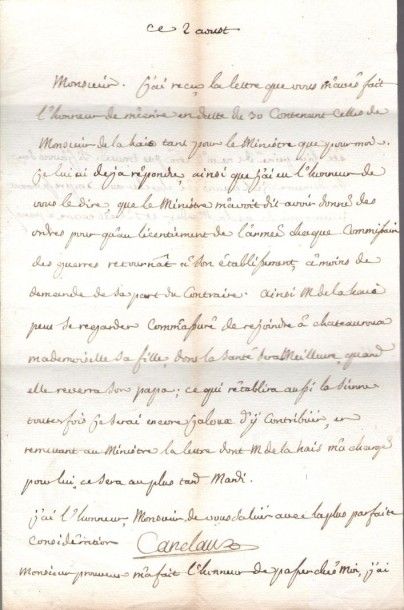 ce 2 aoust
Monsieur. j'ai reçu la lettre que vous m'avés fait
l'honneur de m'ecrire en datte du 30 Contenant Celles de
Monsieur de la hais tant pour le Ministre que pour moi.
je lui ai deja répondu, ainsi que j'ai eu l'honneur de
vous le dire, que le Ministre m'avoit dit avoir donné des
ordres pour qu'au licentiement de l'armée chaque Commissaire
des guerres retournât à Son établissement, à moins de
demande de Sa part du Contraire. ainsi M de la hais
peut se regarder Comm'assuré de rejoindre à chateauroux
mademoiselle Sa fille, dont la Santé Sera Meilleure, quand
elle reverra Son papa; ce qui rétablira aussi la Sienne
toutes fois je Serai encore jaloux d'y Contribuer, en
remettant au Ministre la lettre dont M de la hais m'a chargé
pour lui, ce Sera au plus tard Mardi.
j'ai l'honneur, Monsieur de vous Saluer avec la plus parfaite
Considération Canclaux
Monsieur m'a fait l'honneur de passer chés Moi, j'ai